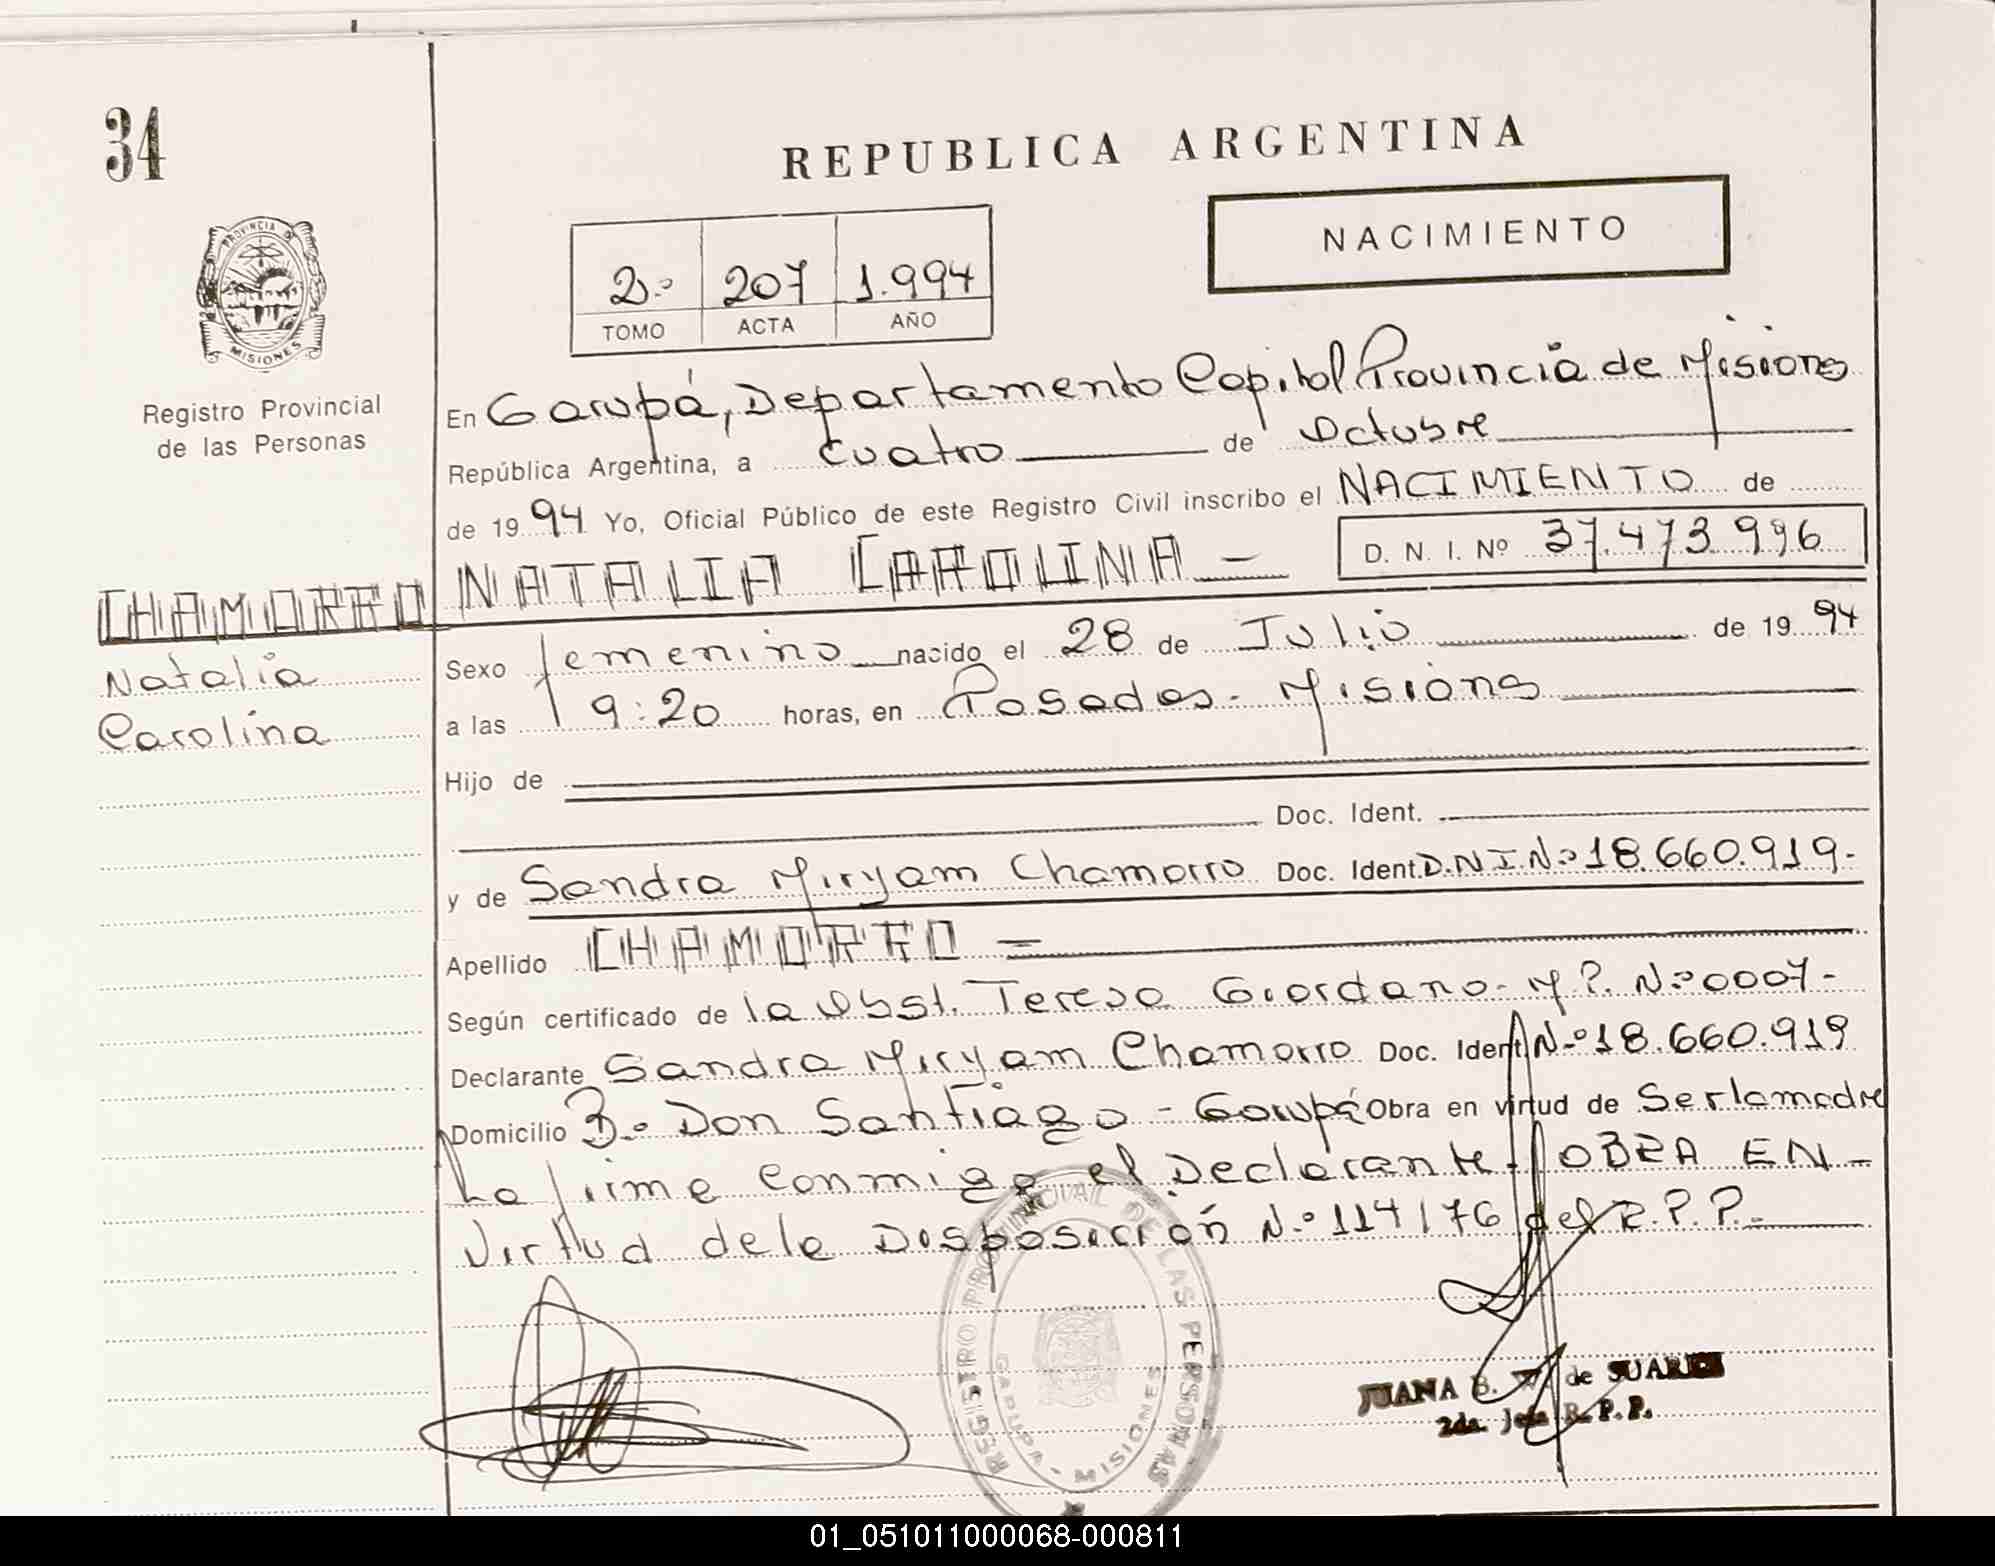 34
REPUBLICA ARGENTINA
NACIMIENTO
2º 207 1.994
TOMO ACTA AÑO
PROVINCIA DE
MISIONES
Registro Provincial
de las Personas
En Garupá, Departamento Capital Provincia de Misiones
República Argentina, a cuatro de Octubre
de 1994 Yo, Oficial Público de este Registro Civil inscribo el NACIMIENTO de
D. N. I. Nº 37.473.996
CHAMORRO NATALIA CAROLINA
Natalia
Carolina
Sexo femenino nacido el 28 de Julio de 1994
a las 19:20 horas, en Posadas - Misiones
Hijo de
Doc. Ident.
y de Sandra Miryam Chamorro Doc. Ident. D.N.I.Nº 18.660.919.-
Apellido CHAMORRO
Según certificado de la Obst. Teresa Giordano - M.P. Nº 0007-
Declarante Sandra Miryam Chamorro Doc. Ident. Nº 18.660.919
Domicilio Bº Don Santiago - Garupá Obra en virtud de Ser la madre
La firme conmigo el Declarante OBRA EN -
Virtud de la Disposición Nº 114/76 del R.P.P.-
REGISTRO PROVINCIAL DE LAS PERSONAS
GARUPA - MISIONES
JUANA B. de SUAREZ
2da. Jefa R. P. P.
01_051011000068-000811